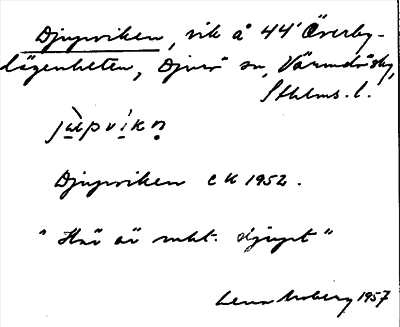 Djupviken, vik å 44' Överby-
lägenheten, Djurö sn, Värmdö skg,
Sthlms. l.
jùpvikn
Djupviken EK 1952.
"Här är mkt. djupt"
Lena Moberg 1957